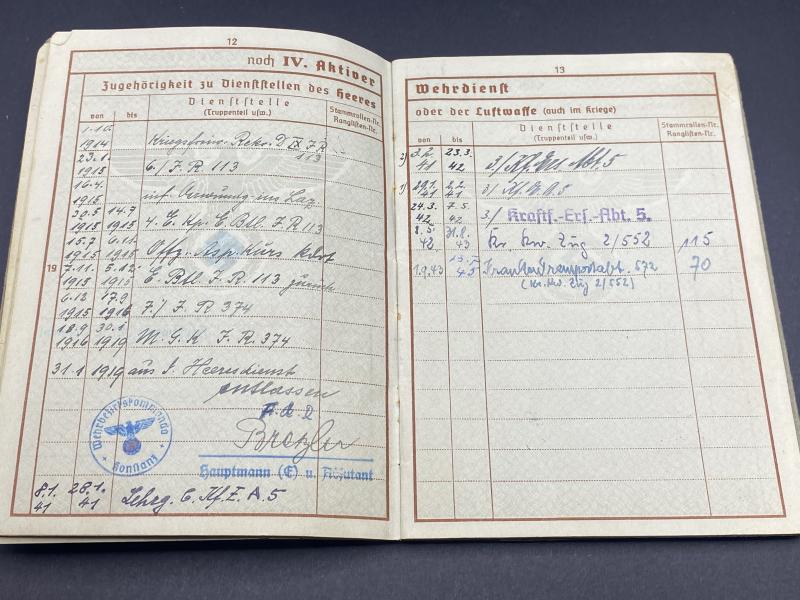 12
noch IV. Aktiver
Zugehörigkeit zu Dienststellen des Heeres
von bis Dienststelle (Truppenteil usw.) Stammrollen-Nr. Ranglisten-Nr.
1914
23.1. 1915 6./J.R. 113
16.4. 1915
30.5 1915 14.7 1915 4. E. Kp. E. Btl. J.R. 113
15.7 1915 6.11. 1915 Offz. Asp. Kurs
19
7.11. 1915 5.12. 1915 E. Btl. J.R. 113 zurück
6.12 1915 17.9 1916 7./J.R. 374
18.9 1916 30.1. 1919 M.G.K. J.R. 374
31.1.1919 aus d. Heeresdienst
entlassen
Wehrbezirkskommando Konstanz
Hauptmann (E) u. Adjutant
8.1. 41 28.1. 41 Lehrg. 6. Kf. E. A. 5
13
Wehrdienst
oder der Luftwaffe (auch im Kriege)
von bis Dienststelle (Truppenteil usw.) Stammrollen-Nr. Ranglisten-Nr.
2) 3.2. 41 23.3. 42 3./Kf. Ers. Abt. 5
1) 29.1. 41 2.2. 41
24.3. 42 7.5. 42 3./ Kraftf.-Ers.-Abt. 5.
8.5. 42 31.8. 43 Kr. Kw. Zug 2/552 115
1.9.43 45 Krankentransportabt. 572 70
(Kr. Kw. Zug 2/552)